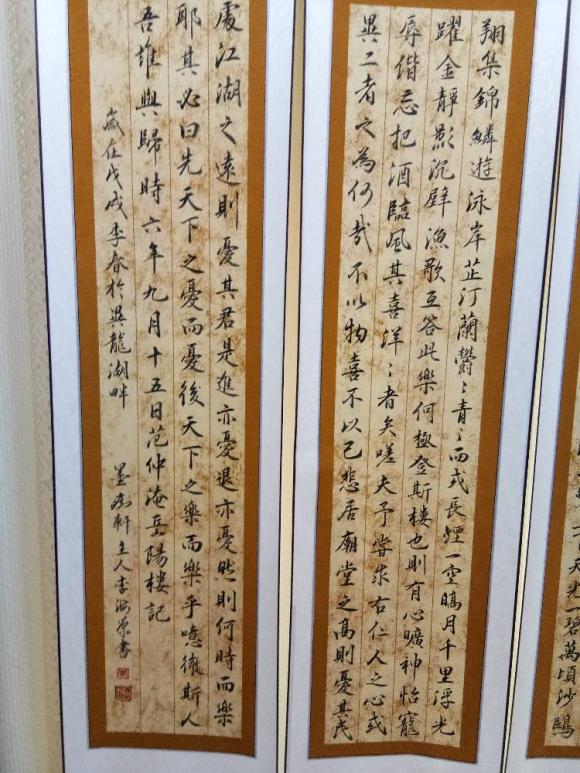 天光一碧萬頃沙鷗
翔集錦鱗遊泳岸芷汀蘭鬱〻青〻而或長煙一空皓月千里浮光
躍金靜影沉璧漁歌互答此樂何極登斯樓也則有心曠神怡寵
辱偕忘把酒臨風其喜洋〻者矣嗟夫予嘗求古仁人之心或
異二者之為何哉不以物喜不以己悲居廟堂之高則憂其民
處江湖之遠則憂其君是進亦憂退亦憂然則何時而樂
耶其必曰先天下之憂而憂後天下之樂而樂乎噫微斯人
吾誰與歸時六年九月十五日范仲淹岳陽樓記
歲在戊戌季春於異龍湖畔 墨軒主人李海原書